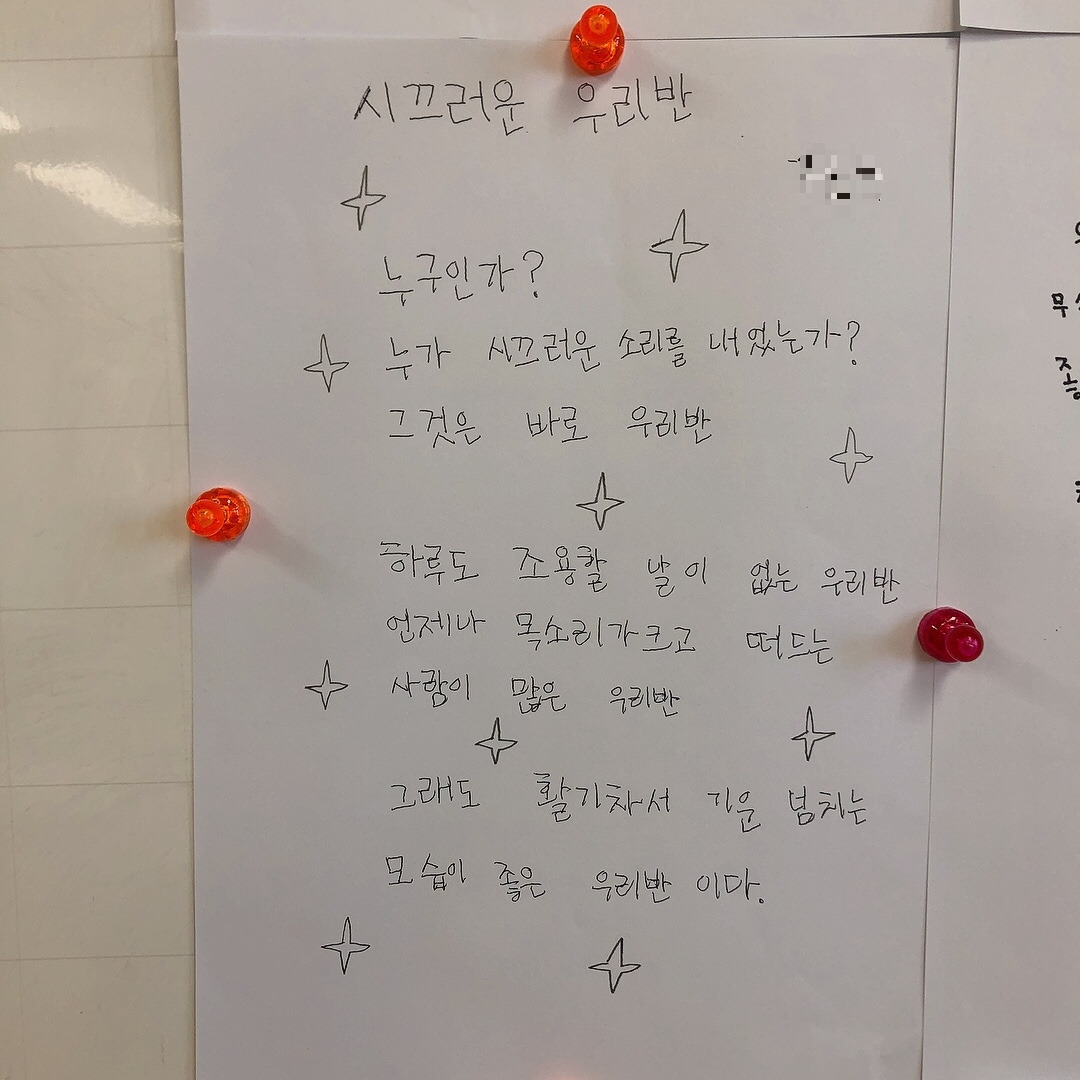 시끄러운 우리반
누구인가?
누가 시끄러운 소리를 내었는가?
그것은 바로 우리반
하루도 조용할 날이 없는 우리반
언제나 목소리가크고 떠드는
사람이 많은 우리반
그래도 활기차서 기운 넘치는
모습이 좋은 우리반 이다.